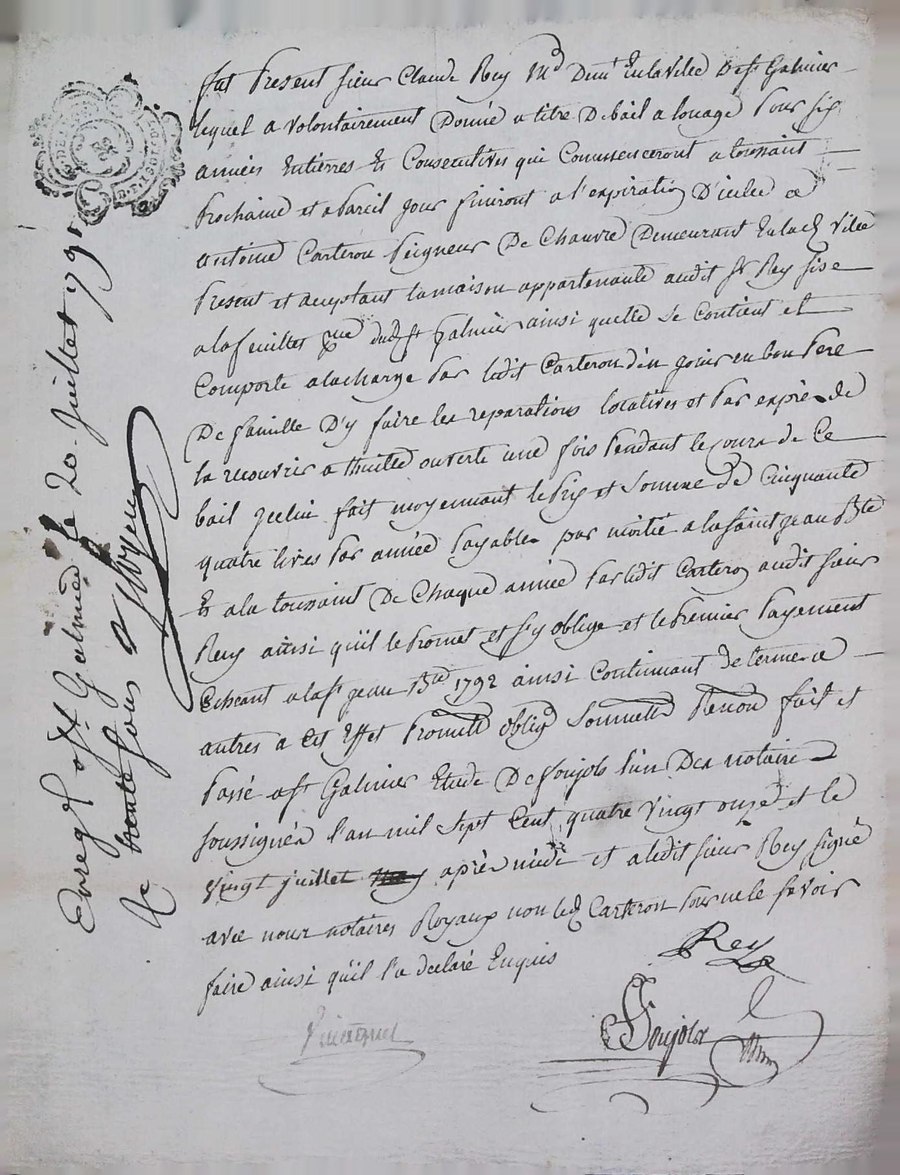 fut Present sieur Claude Rey Md Demt En la Ville De st Galmier
lequel a volontairement Donné a titre De bail a louage Pour six
années Entières Et Consecutives qui Commenceront a toussaint
Prochaine et a Pareil Jour finiront a l'expiration D'icelle a
antoine Carteron Peigneur De Chanvre Demeurant En lad Ville
Present et acceptant la maison appartenante audit Sr Rey sise
a la rue dud st Galmier ainsi quelle se Contient et
Comporte a la charge Par ledit Carteron d'en Jouir en bon Pere
De famille D'y faire les reparations locatives et Par exprès de
la recouvrir a thuille ouverte une fois Pendant le Cours de Ce
bail Jcelui fait moyennant le Prix et somme de Cinquante
quatre livres Par année Payables par moitié a la saint Jean Bte
Et a la toussaint De Chaque année Par ledit Carteron audit sieur
Rey ainsi qu'il le Promet et s'y oblige et le Premier Payement
Echeant a la st Jean Bte 1792 ainsi Continuant de terme a
autres a Cet Effet Promett oblig Soumett Renon fait et
Passé a st Galmier Etude De Soujols l'un Des notaires
soussignés l'an mil sept Cent quatre vingt onze et le
vingt juillet après midi et a ledit sieur Rey signé
avec nous notaires Royaux non led Carteron Pour ne le savoir
faire ainsi qu'il l'a declaré Enquis
Rey
Soujols
Enreg a st Galmier le 20 Juillet 1791
Rc trente sous